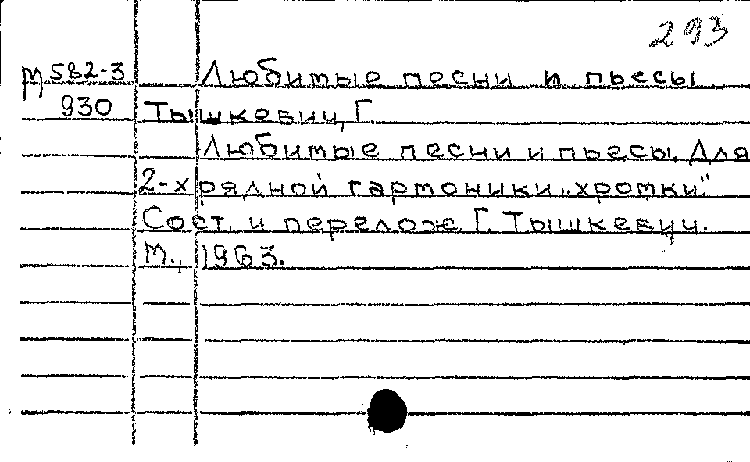 293
М 582-3 Любимые песни и пьесы
930 Тышкевич, Г.
Любимые песни и пьесы. Для
2-х рядной гармоники „хромки"
Сост. и перелож. Г. Тышкевич.
М., 1963.